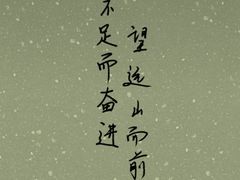 不足而奋进
望远山而前